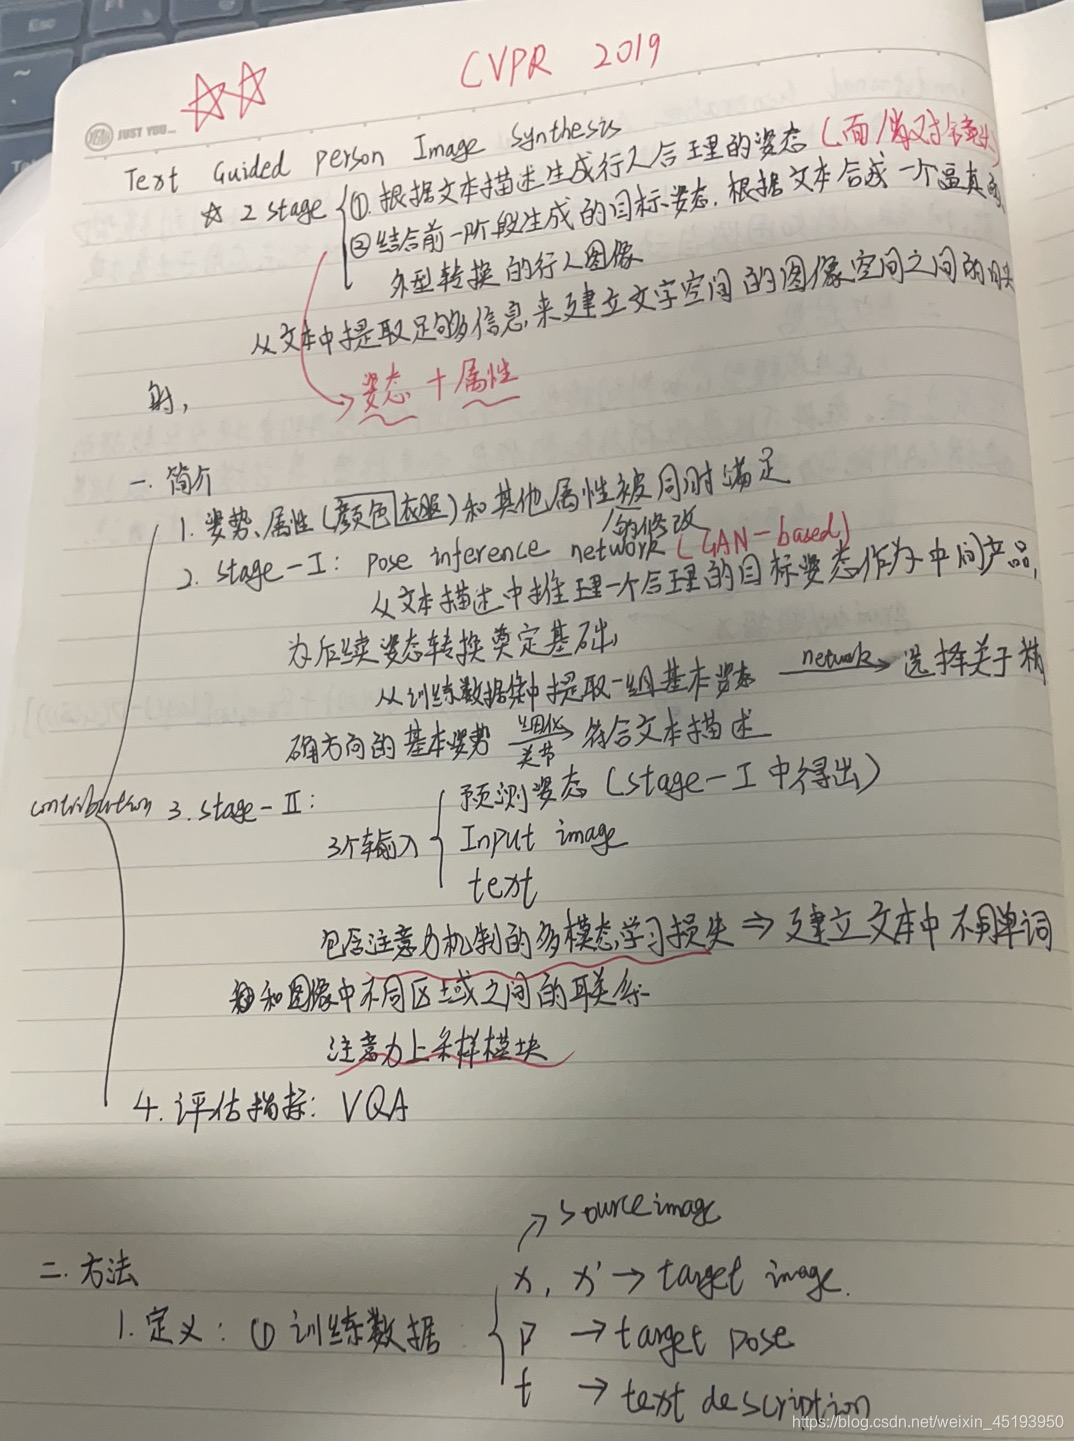 CVPR 2019
YEAH JUST YOU...
Text Guided Person Image Synthesis
☆ 2 stage ①. 根据文本描述生成行人合理的姿态
②结合前一阶段生成的目标姿态, 根据文本合成一个逼真
外型转换的行人图像
从文本中提取足够多信息,来建立文字空间的图像空间之间的
射,
姿态 + 属性
一. 简介
1. 姿势、属性(颜色|衣服)和其他属性被同时满足
的修改
2. Stage-I: pose inference network (GAN-based)
从文本描述中推理一个合理的目标姿态作为中间产品,
为后续姿态转换奠定基础
从训练数据集中提取一组基本姿态 network→ 选择关于精
确方向的基本姿势 细化关节→ 符合文本描述
contribution 3. Stage-II:
3个输入
预测姿态 (Stage-I中得出)
Input image
text
包含注意力机制的多模态学习损失 ⇒ 建立文本中不同单词
和图像中不同区域之间的联系
注意力上采样模块
4. 评估指标: VQA
二. 方法
1. 定义: ① 训练数据
↗ source image
x, x' → target image.
p → target pose
t → text description
https://blog.csdn.net/weixin_45193950